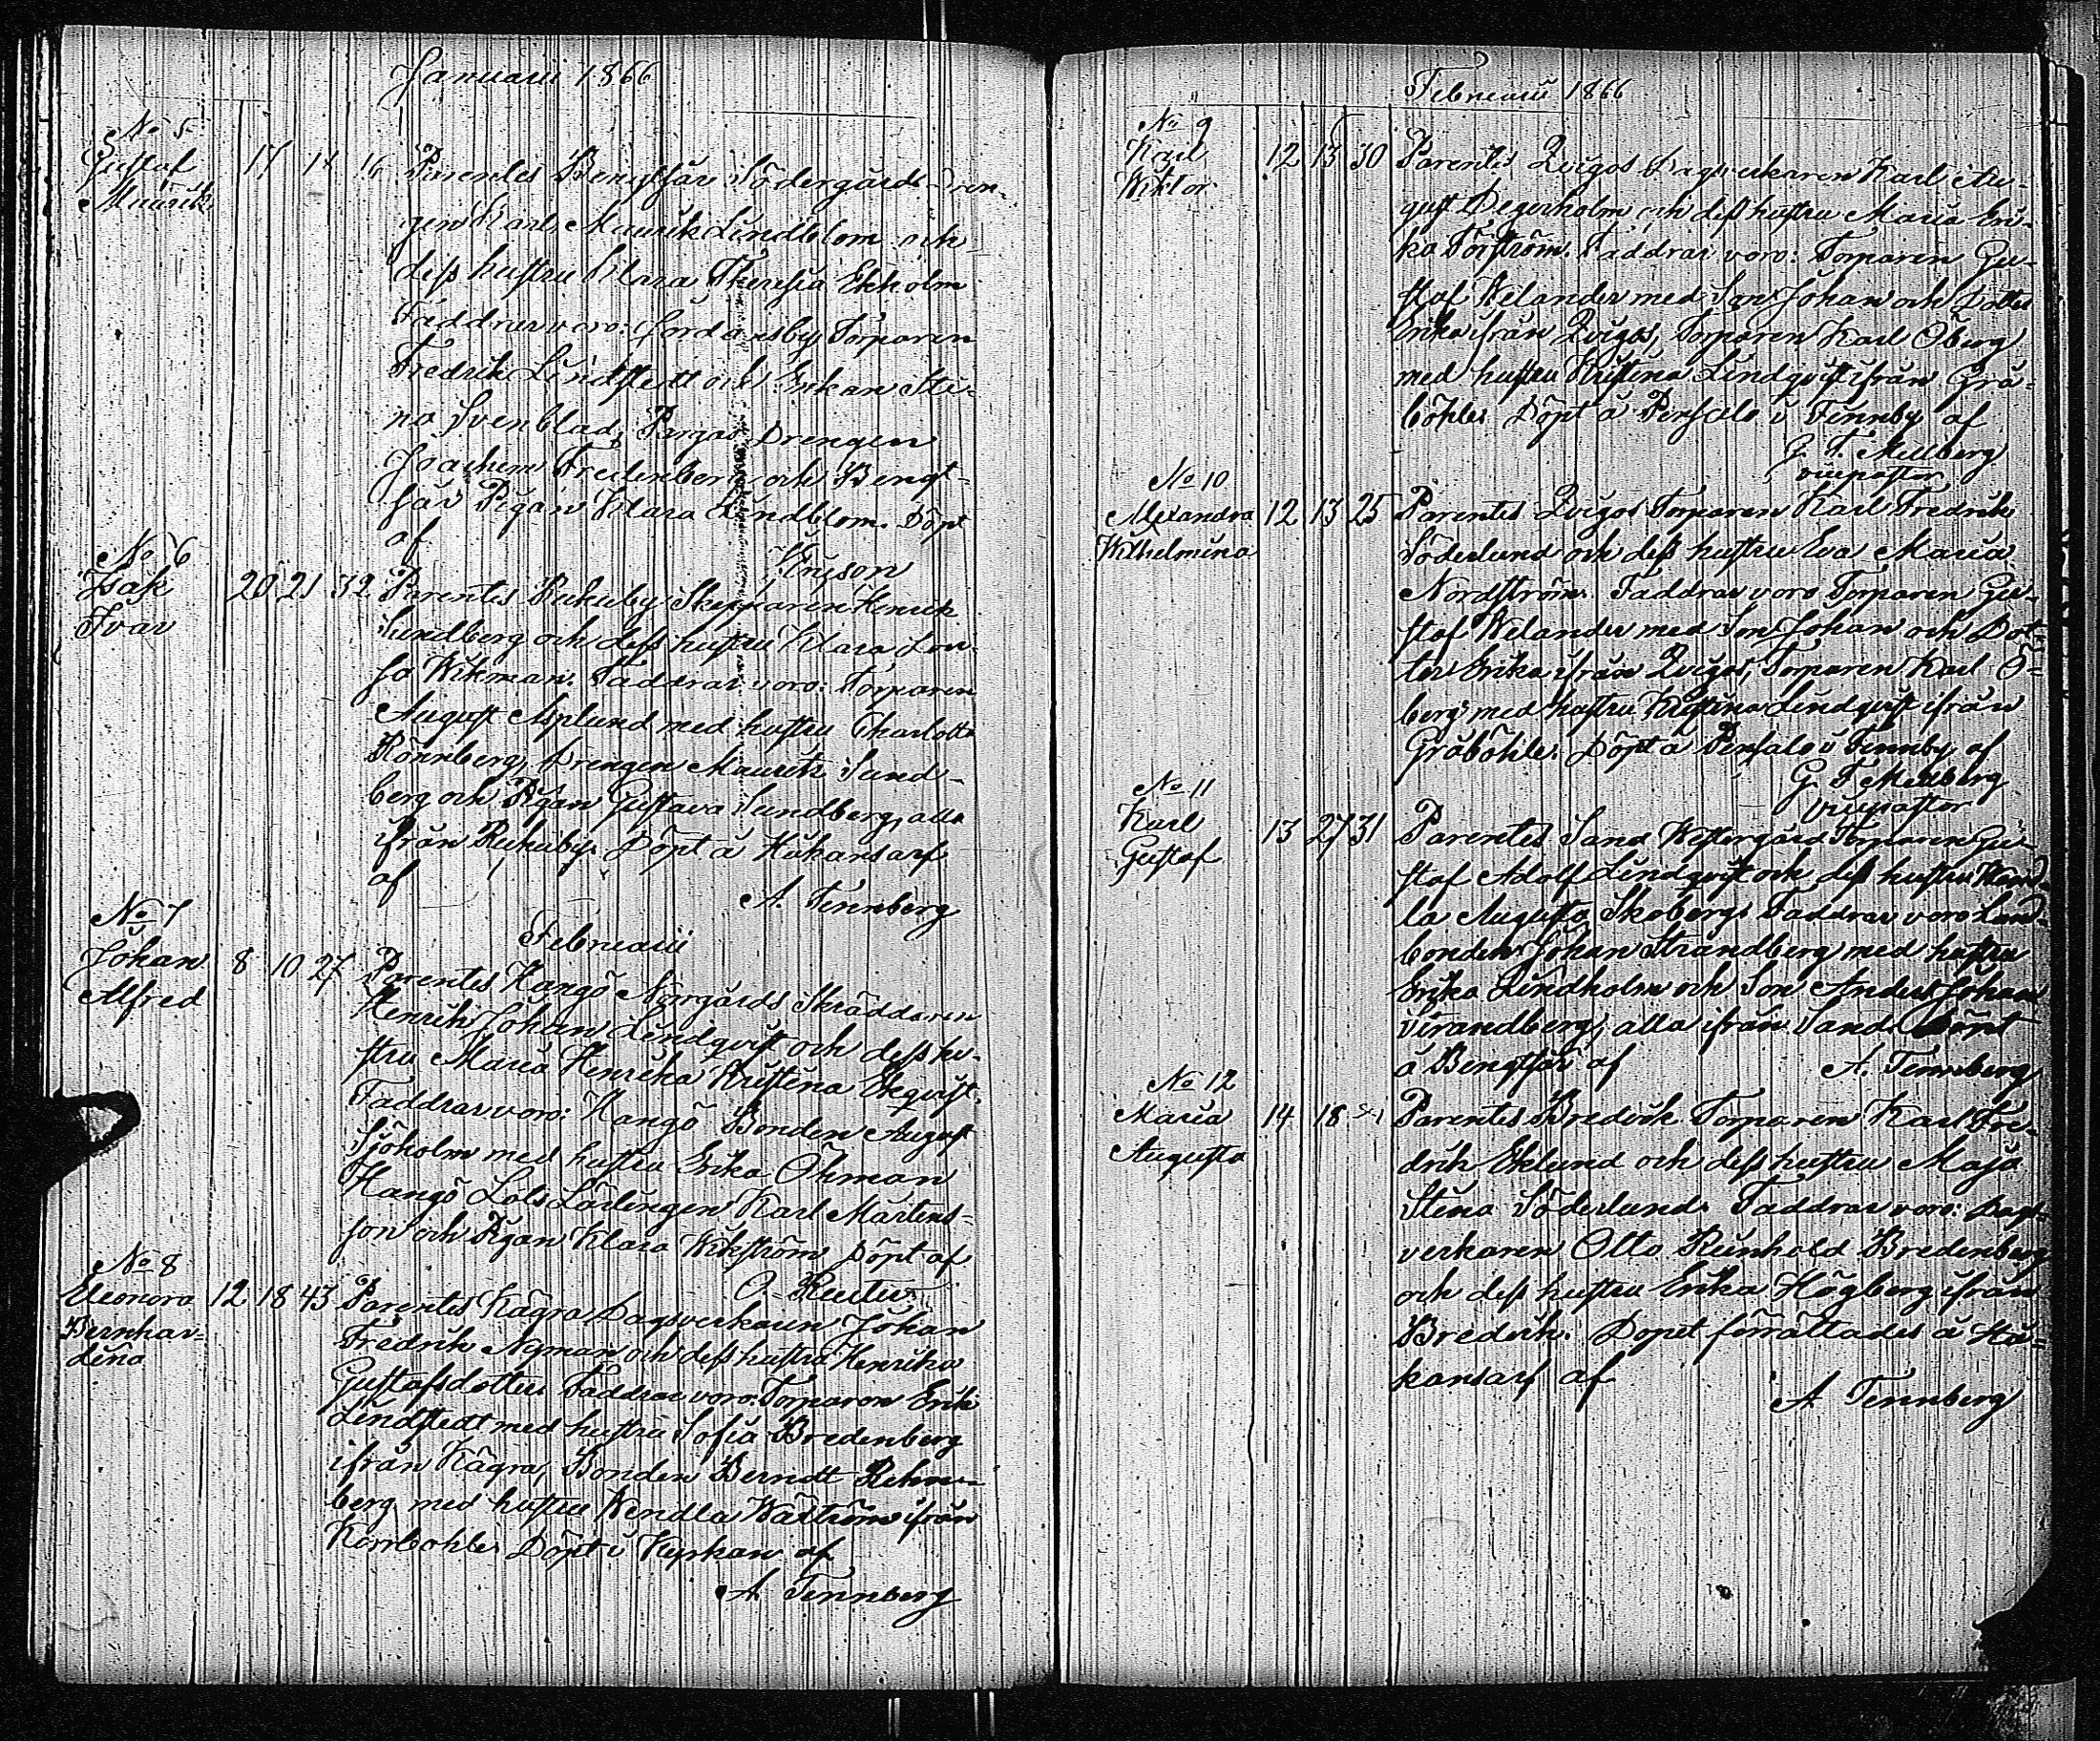 Januarii 1866
No 5
Gustaf 17 18 16 Parentes Bengtsår Södergårds Dren-
Maurik
gen Karl Maurik Lindblom och
dess hustru Klara Theresia Ekholm
Faddrar voro: Jordansby Torparen
Fredrik Lindstedt och Enkan Sti-
na Svenblad, Pargas Drengen
Joachim Fredenberg och Bengt-
sår Pigan Klara Lindblom. Döpt
af
No 6
Isak 20 21 32 Parentes Kukuby Skepparen Henrik
Ivar
Sundberg och dess hustru Klara Lovi-
sa Wikman. Faddrar voro: Torparen
August Asplund med hustru Charlotta
Rönnberg, Drengen Maurits Sund-
berg och Pigan Gustava Sundberg, alla
ifrån Kukuby. Döpt å Håkansarf
af
A. Tennberg
Februarii
No 7
Johan 8 10 27 Parentes Hangö Norrgårds Skräddaren
Alfred
Henrik Johan Lindqvist och dess hu-
stru Maria Henrika Kristina Ekqvist.
Faddrar voro: Hangö Bonden August
Sjöholm med hustru Erika Öhman
Hangö Lots Lärlingen Karl Mårtens-
son och Pigan Klara Wikström Döpt af
O. Reuter
No 8
Eleonora 12 18 43 Parentes Kågra Dagsverkaren Johan
Bernhar-
dina
Fredrik Nyman och dess hustru Henrika
Gustafsdotter. Faddrar voro: Torparen Erik
Lindstedt med hustru Sofia Bredenberg
ifrån Kågra, Bonden Berndt Rehn-
berg med hustru Wendla Wäström ifrån
Korrbohle. Döpt i Kyrkan af
A Tennberg
Februarii 1866
No 9
Karl 12 13 30 Parentes Qvigos Dagsverkaren Karl Au-
Wiktor
gust Degerholm och dess hustru Maria Eri-
ka Törström. Faddrar voro: Torparen Gu-
staf Welander med Son Johan och Dotter
Erika ifrån Qvigos, Torparen Karl Öberg
med hustru Kristina Lindqvist ifrån Grå-
böhle. Döpt å Persalo i Finnby af
G. F. Millberg
vicepastor
No 10
Alexandra 12 13 25 Parentes Qvigos Torparen Karl Fredrik
Wilhelmina
Söderlund och dess hustru Eva Maria
Nordström. Faddrar voro Torparen Gu-
staf Welander med Son Johan och Dot-
ter Erika ifrån Qvigos, Torparen Karl Ö-
berg med hustru Kristina Lindqvist ifrån
Gråböhle. Döpt å Persalo i Finnby af
G. F Millberg
vicepastor
No 11
Karl 13 27 31 Parentes Sand Westergård Torparen Gu-
Gustaf
staf Adolf Lindqvist och dess hustru Wend-
la Augusta Skoberg. Faddrar voro Land-
bonden Johan Strandberg med hustru
Erika Lindholm och Son Anders Johan
Strandberg, alla ifrån Sand. Döpt
å Bengtsår af A. Tennberg
No 12
Maria 14 18 Parentes Bredvik Torparen Karl Fre-
Augusta
drik Eklund och dess hustru Maja
Stina Söderlund. Faddrar voro: Dags-
verkaren Otto Reinhold Bredenberg
och dess hustru Erika Högberg ifrån
Bredvik. Dopet förrättades å Hå-
kansarf af
A Tennberg